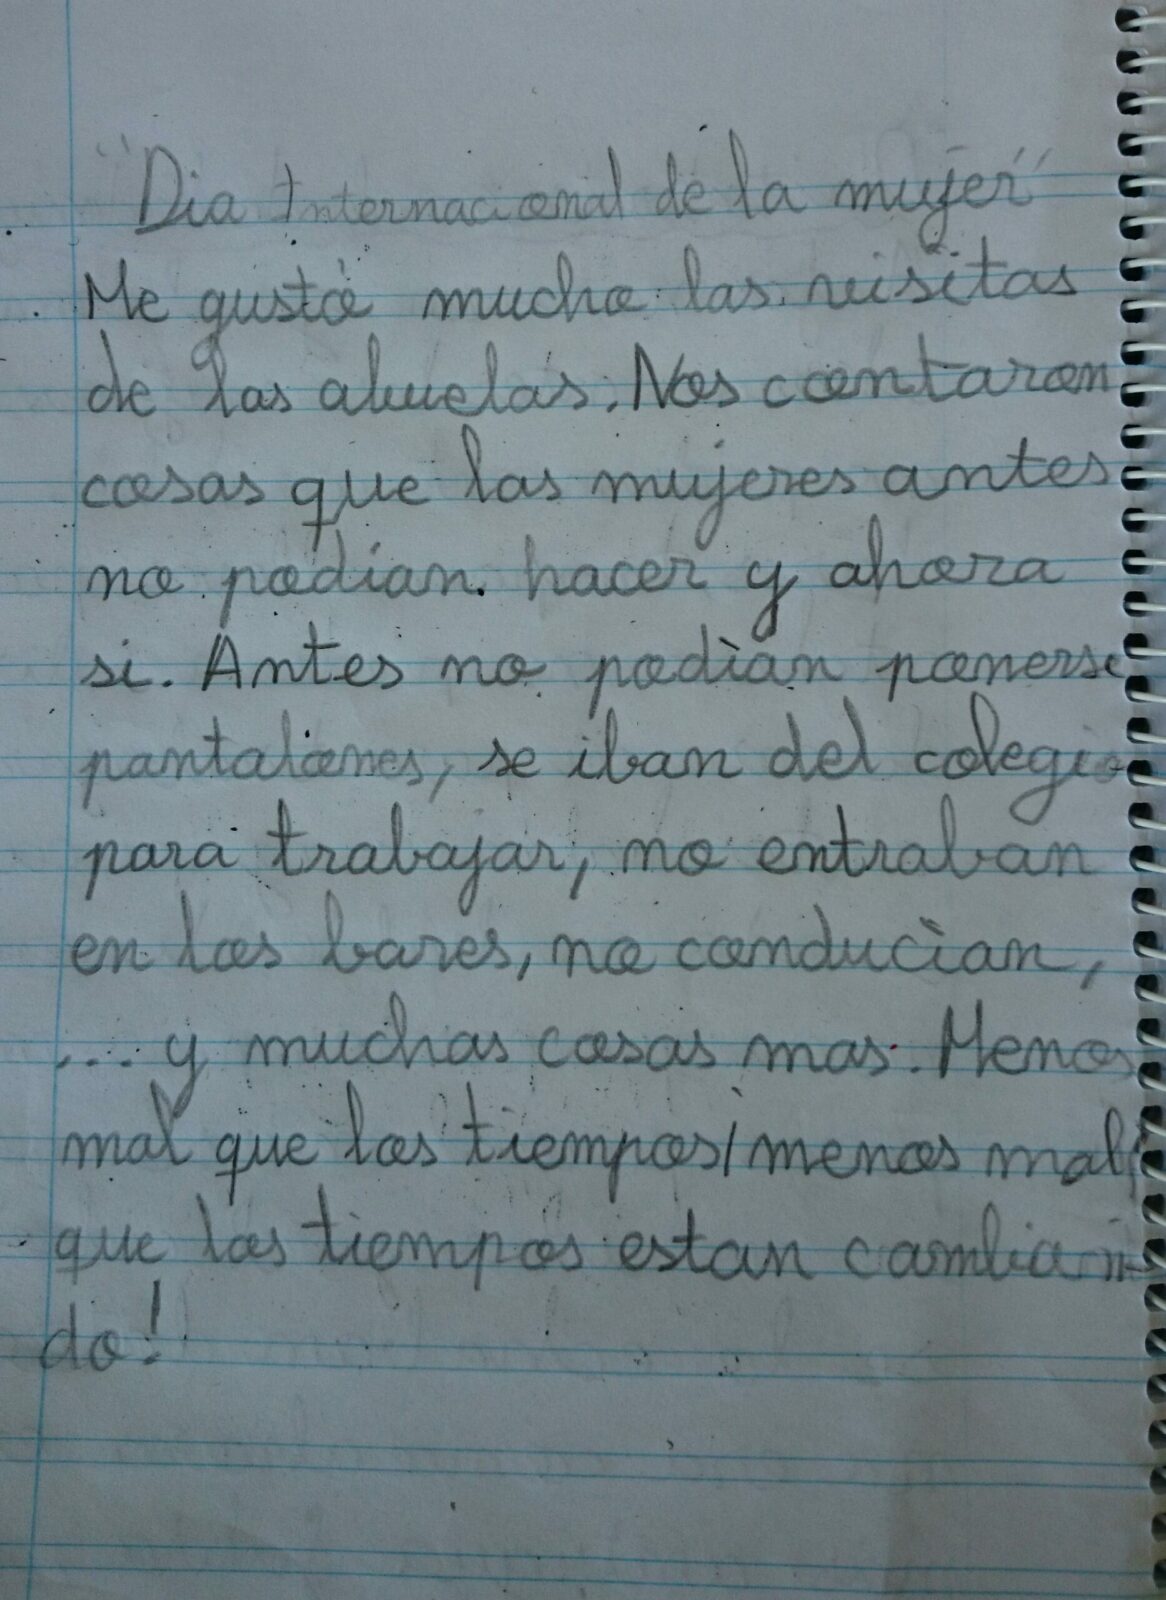 "Dia Internacional de la mujer"
Me gustó mucho las visitas
de las abuelas. Nos contaron
cosas que las mujeres antes
no podian hacer y ahora
si. Antes no podìan ponerse
pantalones, se iban del colegio
para trabajar, no entraban
en los bares, no conducìan,
... y muchas cosas mas. Menos
mal que los tiempos/menos mal
que los tiempos estan cambian-
do!